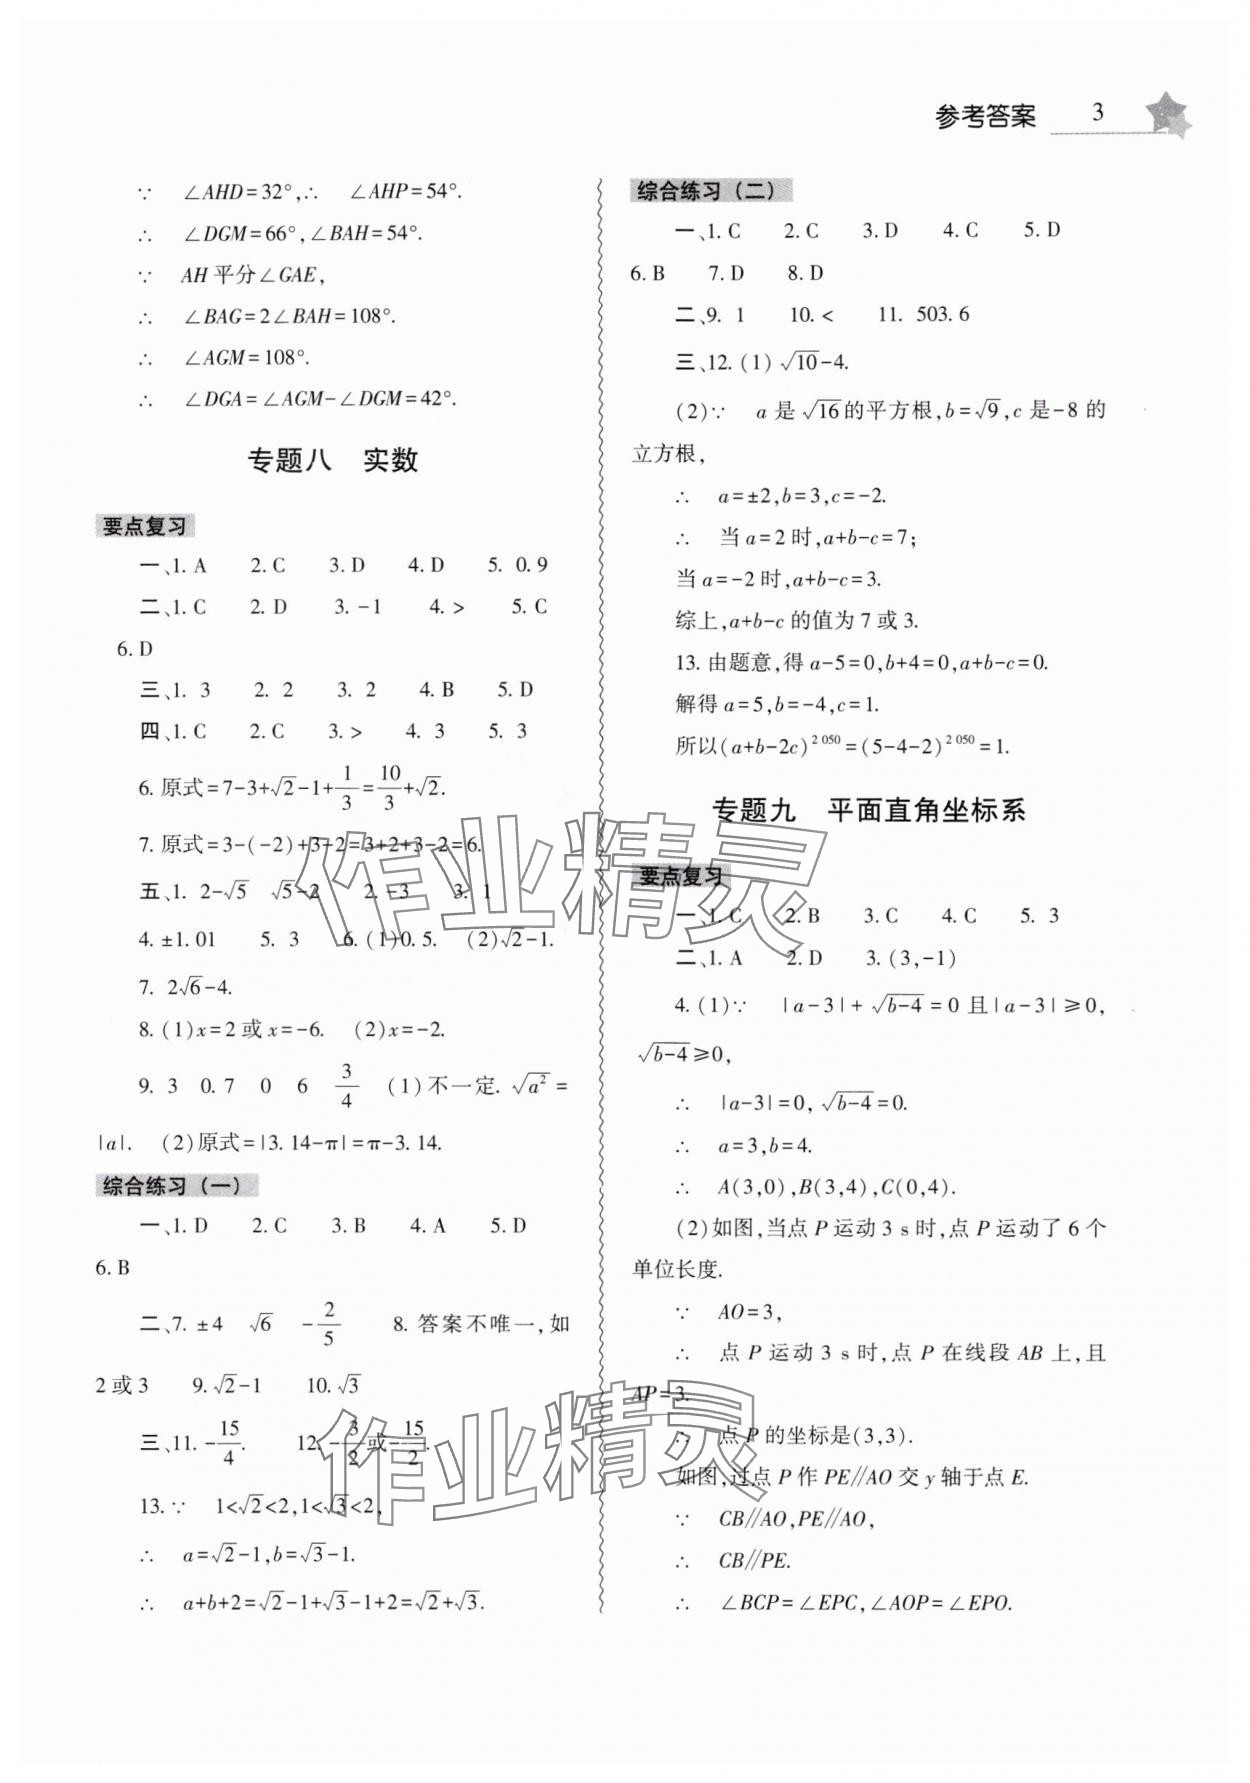 参考答案 3
∵ ∠AHD=32°,∴ ∠AHP=54°.
∴ ∠DGM=66°,∠BAH=54°.
∵ AH平分∠GAE,
∴ ∠BAG=2∠BAH=108°.
∴ ∠AGM=108°.
∴ ∠DGA=∠AGM-∠DGM=42°.
专题八 实数
要点复习
一、1. A 2. C 3. D 4. D 5. 0.9
二、1. C 2. D 3. -1 4. > 5. C
6. D
三、1. 3 2. 2 3. 2 4. B 5. D
四、1. C 2. C 3. > 4. 3 5. 3
6. 原式=7-3+√2-1+1/3=10/3+√2.
7. 原式=3-(-2)+3-2=3+2+3-2=6.
五、1. 2-√5 √5-2 2. -3 3. 1
4. ±1.01 5. 3 6. (1)0.5. (2)√2-1.
7. 2√6-4.
8. (1)x=2或x=-6. (2)x=-2.
9. 3 0.7 0 6 3/4 (1)不一定. √a²=
|a|. (2)原式=|3.14-π|=π-3.14.
综合练习(一)
一、1. D 2. C 3. B 4. A 5. D
6. B
二、7. ±4 √6 -2/5 8. 答案不唯一,如
2或3 9. √2-1 10. √3
三、11. -15/4. 12. -3/2或-15/2.
13. ∵ 1<√2<2,1<√3<2,
∴ a=√2-1,b=√3-1.
∴ a+b+2=√2-1+√3-1+2=√2+√3.
综合练习(二)
一、1. C 2. C 3. D 4. C 5. D
6. B 7. D 8. D
二、9. 1 10. < 11. 503.6
三、12. (1)√10-4.
(2)∵ a是√16的平方根,b=√9,c是-8的
立方根,
∴ a=±2,b=3,c=-2.
∴ 当a=2时,a+b-c=7;
当a=-2时,a+b-c=3.
综上,a+b-c的值为7或3.
13. 由题意,得a-5=0,b+4=0,a+b-c=0.
解得a=5,b=-4,c=1.
所以(a+b-2c)^2 050=(5-4-2)^2 050=1.
专题九 平面直角坐标系
要点复习
一、1. C 2. B 3. C 4. C 5. 3
二、1. A 2. D 3. (3,-1)
4. (1)∵ |a-3|+√(b-4)=0且|a-3|≥0,
√(b-4)≥0,
∴ |a-3|=0,√(b-4)=0.
∴ a=3,b=4.
∴ A(3,0),B(3,4),C(0,4).
(2)如图,当点P运动3 s时,点P运动了6个
单位长度.
∵ AO=3,
∴ 点P运动3 s时,点P在线段AB上,且
AP=3.
∴ 点P的坐标是(3,3).
如图,过点P作PE∥AO交y轴于点E.
∵ CB∥AO,PE∥AO,
∴ CB∥PE.
∴ ∠BCP=∠EPC,∠AOP=∠EPO.
作业精灵
作业精灵